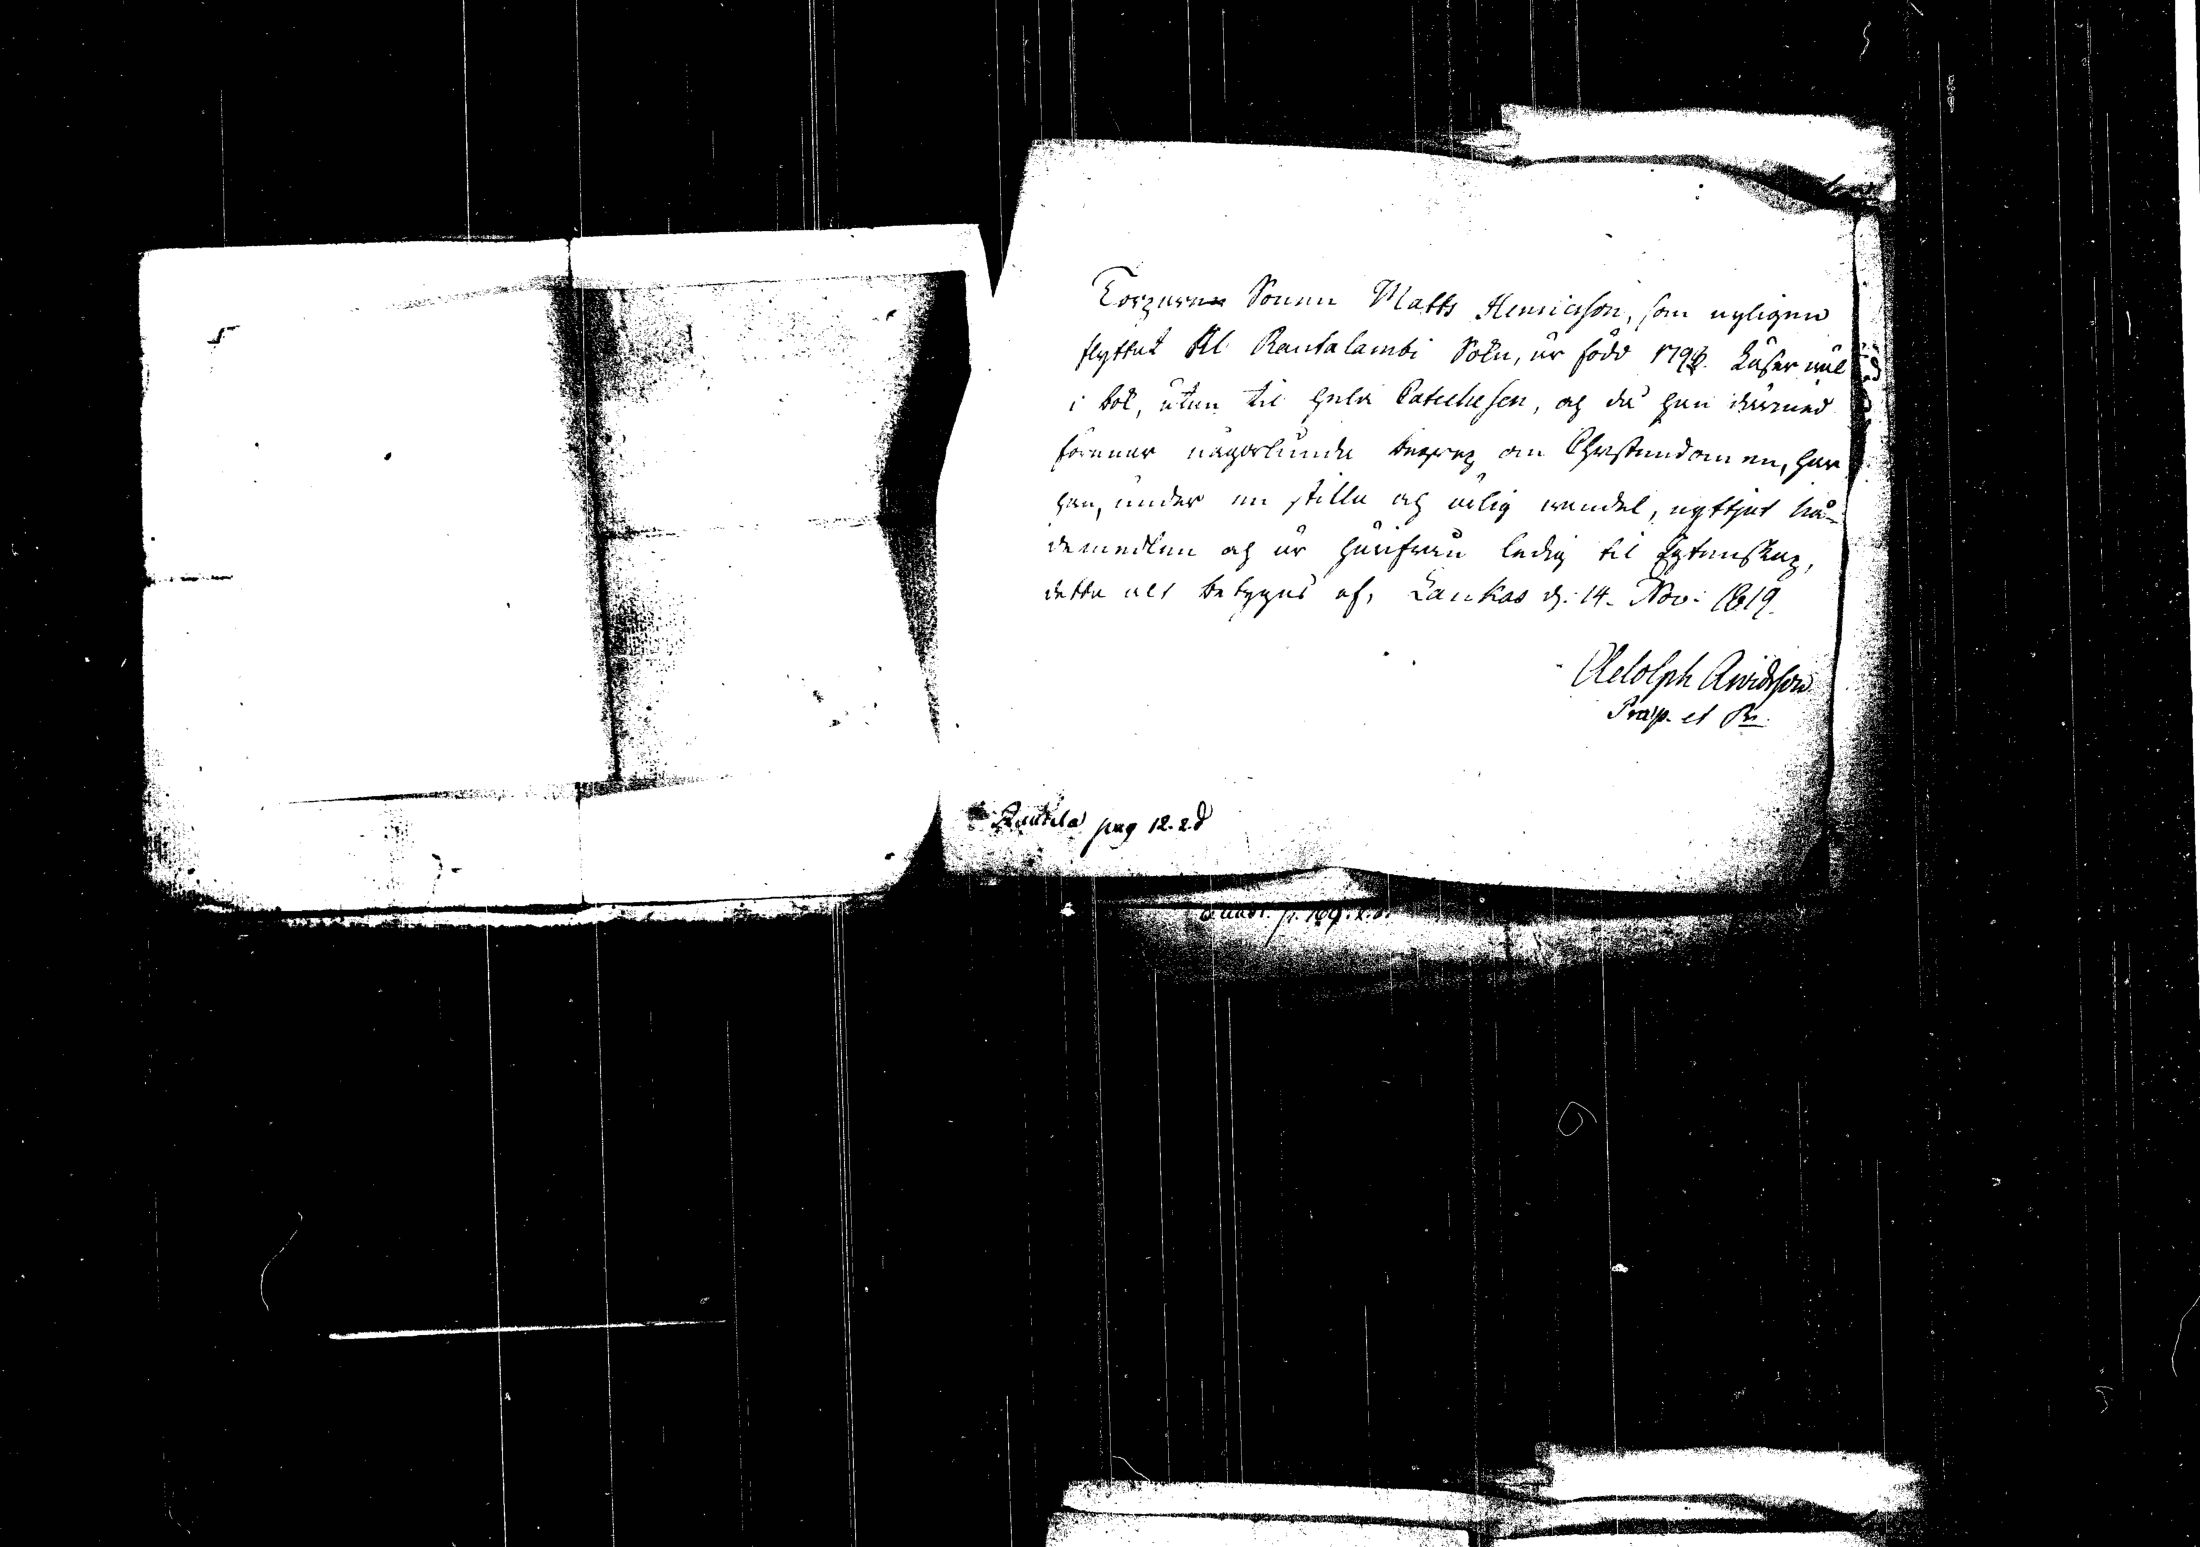 Torpare Sonen Matts Henricsson, som nyligen
flyttat til Rautalambi Sokn, är född 179 Läser wäl
i bok, utan til hela Catechesen, och då han därmed
förenar någorlunda begrep om Christendomen, har
han, under en stilla och ärlig wandel, nyttjat nå-
demedlen och är härifrån ledig til Egtenskap,
detta alt betygas af, Laukas d: 14. Nov: 1819.
Adolph Arvidsson
Præp. et
pag 12.2.d
p. 169.